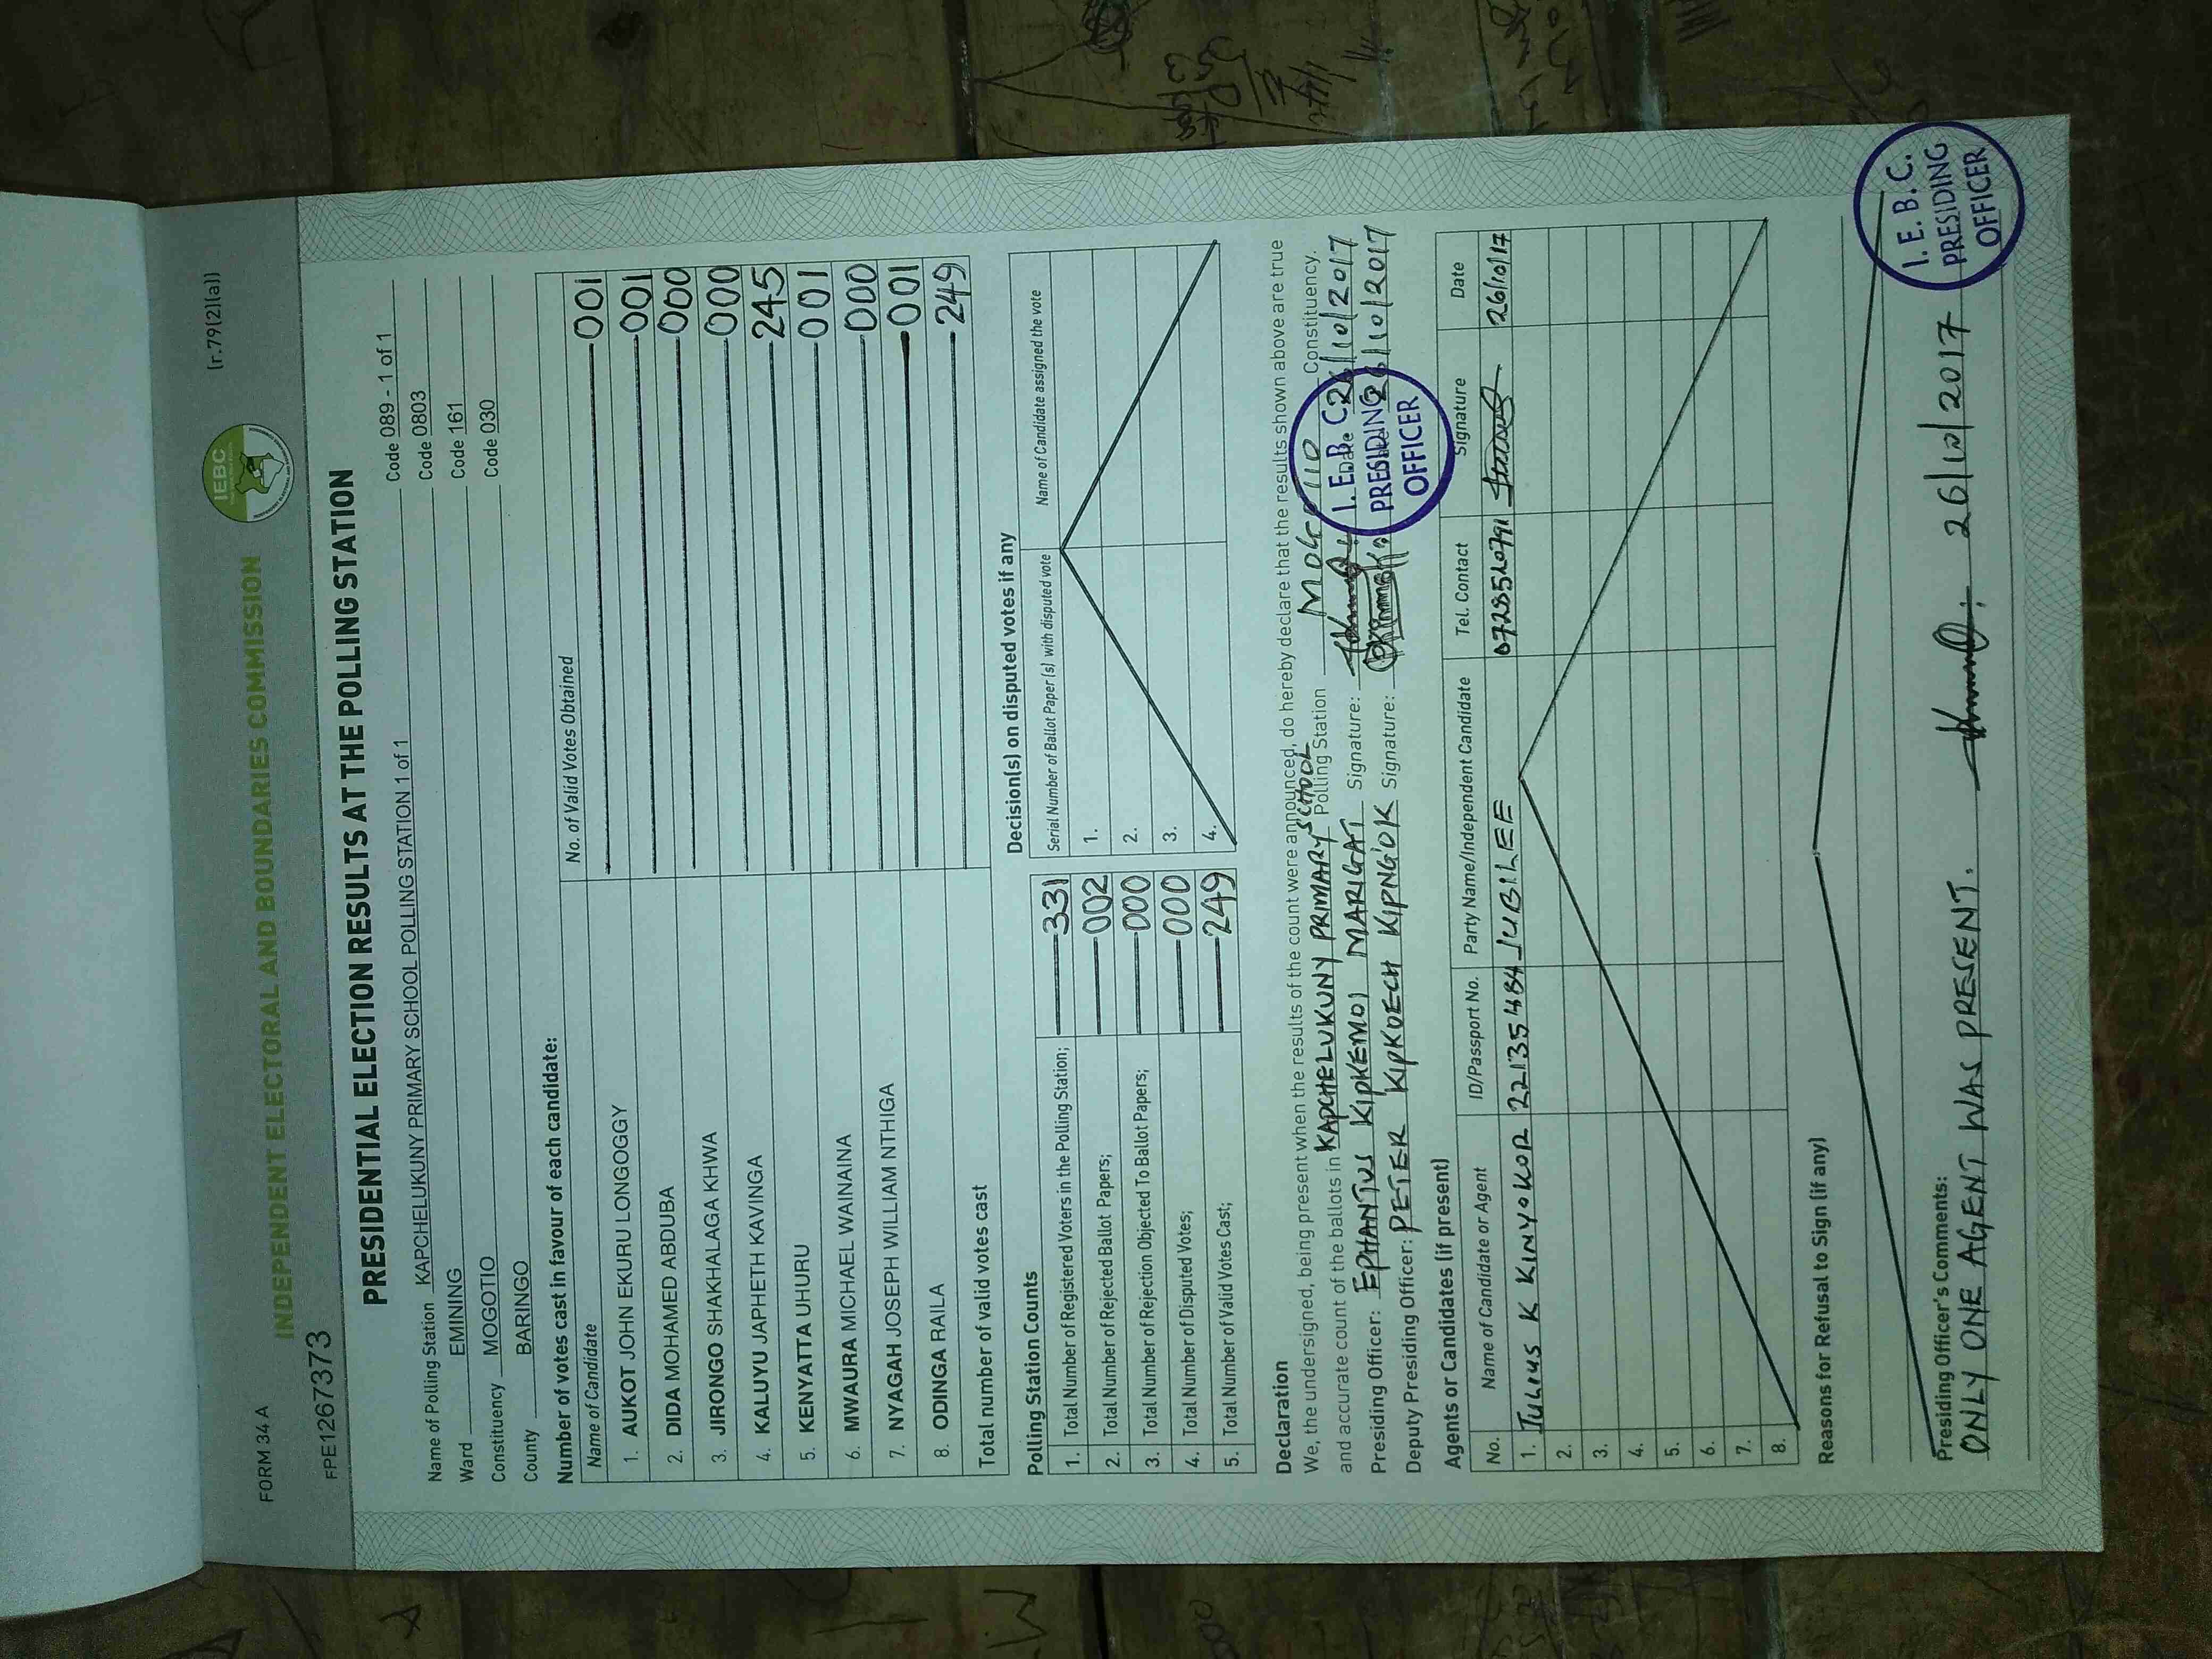 FORM 34 A
INDEPENDENT ELECTORAL AND BOUNDARIES COMMISSION
IEBC
(r.79(2)(a))
FPE1267373
PRESIDENTIAL ELECTION RESULTS AT THE POLLING STATION
Name of Polling Station KAPCHELUKUNY PRIMARY SCHOOL POLLING STATION 1 of 1 Code 089 - 1 of 1
Ward EMINING Code 0803
Constituency MOGOTIO Code 161
County BARINGO Code 030
Number of votes cast in favour of each candidate:
Name of Candidate No. of Valid Votes Obtained
1. AUKOT JOHN EKURU LONGOGGY 001
2. DIDA MOHAMED ABDUBA 001
3. JIRONGO SHAKHALAGA KHWA 000
4. KALUYU JAPHETH KAVINGA 000
5. KENYATTA UHURU 245
6. MWAURA MICHAEL WAINAINA 001
7. NYAGAH JOSEPH WILLIAM NTHIGA 000
8. ODINGA RAILA 001
Total number of valid votes cast 249
Polling Station Counts
1. Total Number of Registered Voters in the Polling Station; 331
2. Total Number of Rejected Ballot Papers; 002
3. Total Number of Rejection Objected To Ballot Papers; 000
4. Total Number of Disputed Votes; 000
5. Total Number of Valid Votes Cast; 249
Decision(s) on disputed votes if any
Serial Number of Ballot Paper (s) with disputed vote Name of Candidate assigned the vote
1.
2.
3.
4.
Declaration
We, the undersigned, being present when the results of the count were announced, do hereby declare that the results shown above are true
and accurate count of the ballots in KAPCHELUKUNY PRIMARY SCHOOL Polling Station MOGOTIO Constituency.
Presiding Officer: EPHANTUS KIPKEMOI MARIGAT Signature: Date 26/10/2017
Deputy Presiding Officer: PETER KIPKOECH KIPNG'OK Signature: 26/10/2017
I. E. B. C.
PRESIDING
OFFICER
Agents or Candidates (if present)
No. Name of Candidate or Agent ID/Passport No. Party Name/Independent Candidate Tel. Contact Signature Date
1. Julius K KINYOKOR JUBILEE 26/10/17
2.
3.
4.
5.
6.
7.
8.
Reasons for Refusal to Sign (if any)
Presiding Officer's Comments:
ONLY ONE AGENT WAS PRESENT. 26/10/2017
I. E. B. C.
PRESIDING
OFFICER